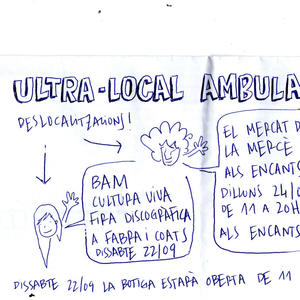 ULTRA-LOCAL AMBULA
DESLOCALITZACIONS!
EL MERCAT D
LA MERCÈ
ALS ENCANTS
DILLUNS 24/0
DE 11 A 20H
ALS ENCANTS
BAM
CULTURA VIVA
FIRA DISCOGRÀFICA
A FABRA i COATS
DISSABTE 22/09
DISSABTE 22/09 LA BOTIGA ESTARÀ OBERTA DE 11